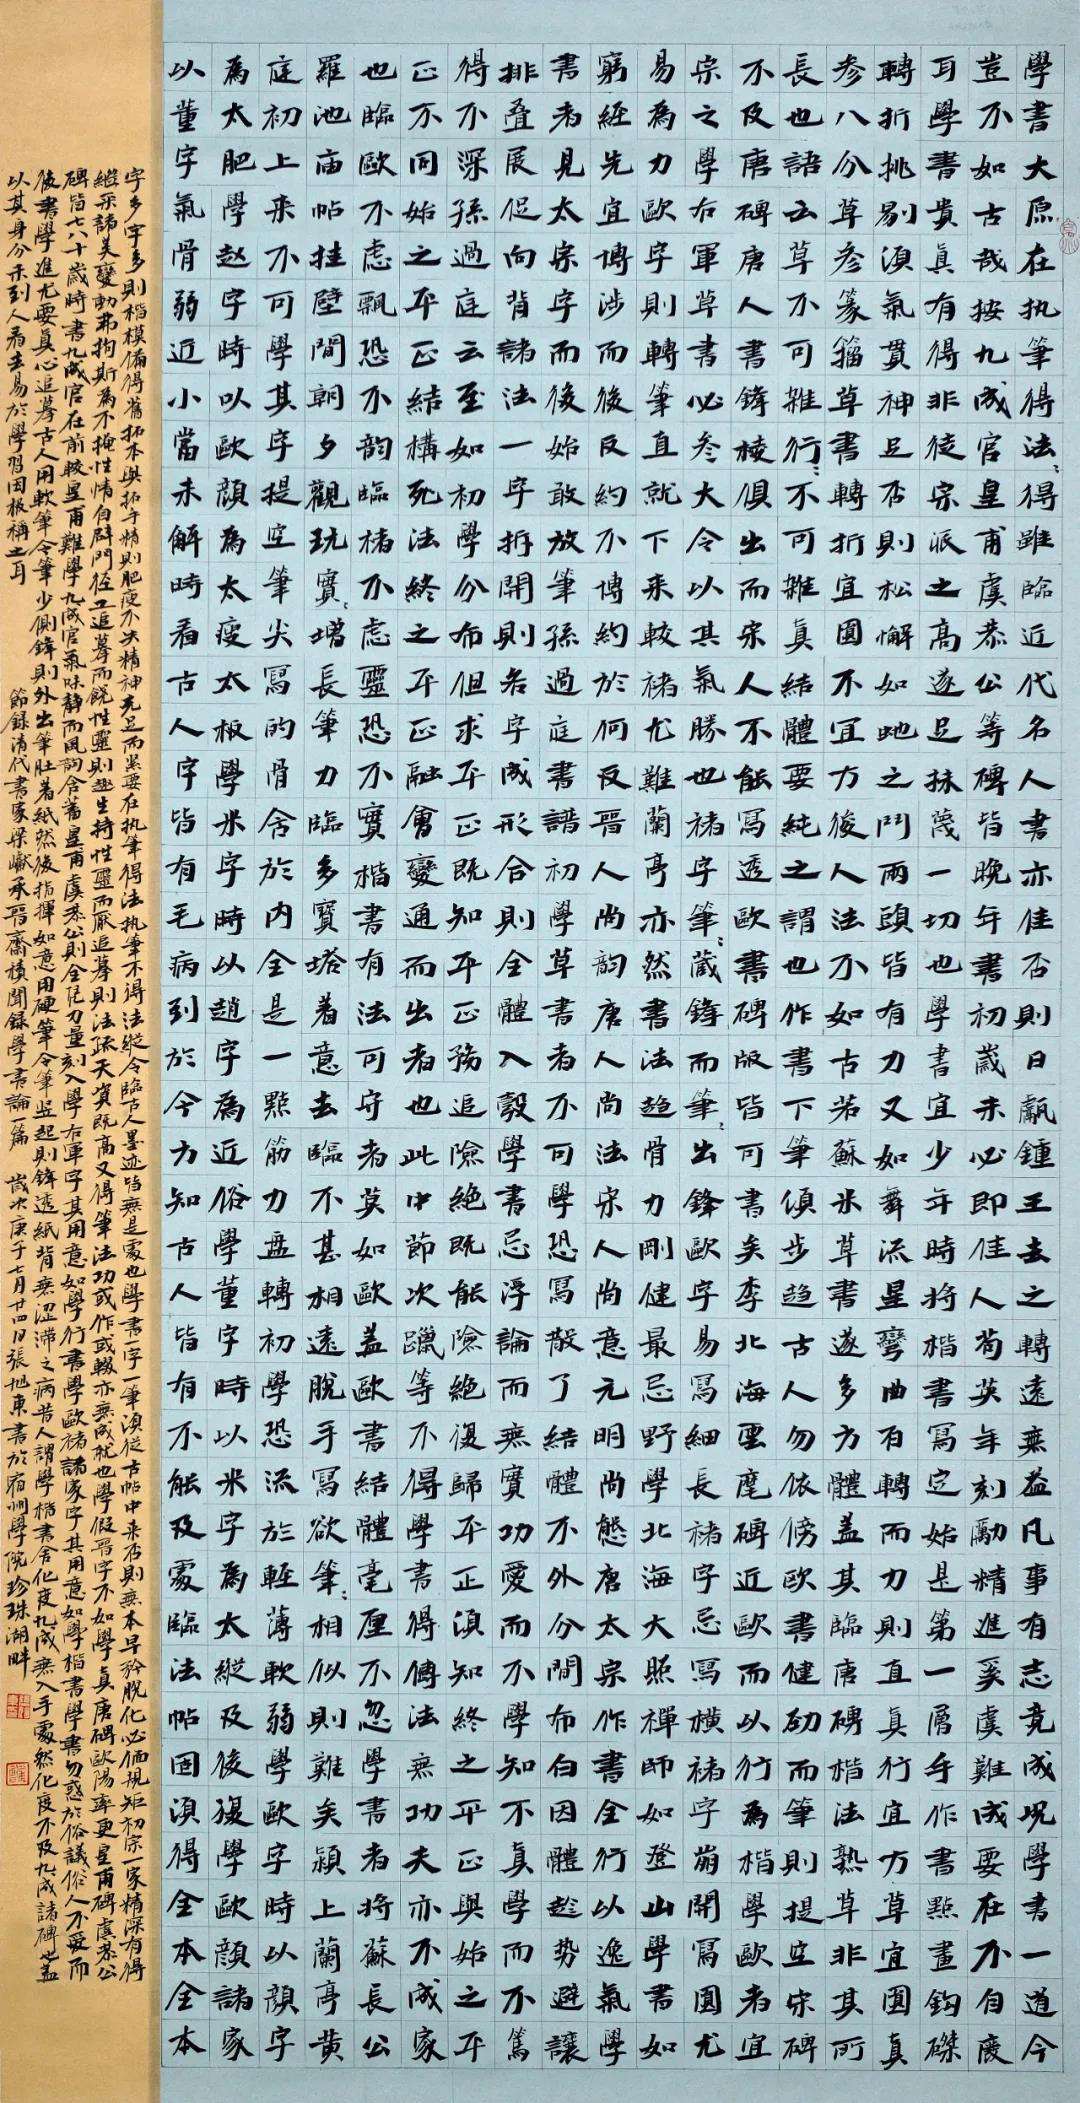 學書大原在执筆得法;得雖臨近代名人書亦佳否則日鍾王去之轉遠無益凡事有志竟成況學書一道今
豈不如古哉按九成宮皇甫虞恭公等碑皆晚年書初歲未必即佳人苟英年刻勵精進奚虞難成要在不自廢
耳學書貴真有得非徒宗派之高遂足抹蔑一切也學書宜少年時將楷書寫定始是第一層手作書點畫鈎磔
轉折挑剔須氣貫神足否則松懈如虵之鬥兩頭皆有力又如舞流星彎曲百轉而力則直真行宜方草宜圓真
參八分草參篆籀草書轉折宜圓不宜方後人法不如古若蘇米草書遂多方體蓋其臨唐碑楷法熟草非其所
長也語云草不可雜行;不可雜真結體要純之謂也作書下筆傾步趋古人勿依傍歐書健劲而筆則提空宋碑
不及唐碑唐人書鋒棱俱出而宋人不能寫透歐書碑版皆可書矣李北海雲麾碑近歐而以行為楷學歐者宜
宗之學右軍草書必叄大令以其氣勝也褚字筆;藏鋒而筆;出鋒歐字易寫細長褚字忌寫橫褚字崩開寫圓尤
易為力歐字則轉筆直就下来較褚尤難蘭亭亦然書法趋骨力剛健最忌野學北海大照禪師如登山學書如
窮經先宜博涉而後反約不博約於何反晉人尚韵唐人尚法宋人尚意元明尚態唐太宗作書全行以逸氣學
書者見太宗字而後始敢放筆孫過庭書譜初學草書者不可學恐寫散了結體不外分間布白因體趁勢避讓
排疊展促向背諸法一字拆開則各字成形合則全體入彀學書忌浮論而無實功愛而不學知不真學而不篤
得不深孫過庭云至如初學分布但求平正既知平正務追險絕既能險絕復歸平正須知終之平正與始之平
正不同始之平正結構死法終之平正融會變通而出者也此中節次躐等不得學書得傅法無功夫亦不成家
也臨歐不慮飄恐不韵臨褚不慮靈恐不實楷書有法可守者莫如歐盖歐書結體毫厘不忽學書者將蘇長公
羅池庙帖挂壁間朝夕觀玩實;增長筆力臨多寶塔着意去臨不甚相遠脫手寫欲筆;相似則難矣潁上蘭亭黄
庭初上来不可學其字提空筆尖寫的骨含於內全是一點筋力盘轉初學恐流於輕薄軟弱學歐字時以顔字
為太肥學赵字時以歐顔為太瘦太板學米字時以趙字為近俗學董字時以米字為太縱及後復學歐顔諸家
以董字氣骨弱近小當未解時看古人字皆有毛病到於今方知古人皆有不能及處臨法帖固須得全本全本
字多字多則楷模備得舊拓本與拓手精則肥瘦不失精神充足而要在执筆得法执筆不得法縱令臨古人墨迹皆無是處也學書一字一筆須從古帖中来否則無本早矜脫化必偭規矩初宗一家精深有得
繼采諸美變動弗拘斯為不掩性情自辟門徑工追摹而饒性靈則趣生持性靈而厭追摹則法疏天資既高又得筆法功或作或輟亦無成就也學假晉字不如學真唐碑歐陽率更皇甫碑虞恭公
碑皆七八十歲時書九成宮在前較皇甫難學九成宮氣味静而風韵含蓄皇甫虞恭公則全刀量刻入學右軍字其用意如學行書學歐褚諸家字其用意如學楷書學書勿惑於俗議俗人不爱而
後書學進尤要真心追摹古人用軟筆令筆少側鋒則外出筆肚着紙然後指揮如意用硬筆令筆竖起則鋒透紙背無澀滯之病昔人謂學楷書舍化度九成無入手處然化度不及九成諸碑也盖
以其身分未到人看去易於學習因板稱之耳 節錄清代書家梁巘承晉齋積聞錄學書論一篇 歲次庚子七月廿四日張旭東書於宿州學院珍珠湖畔